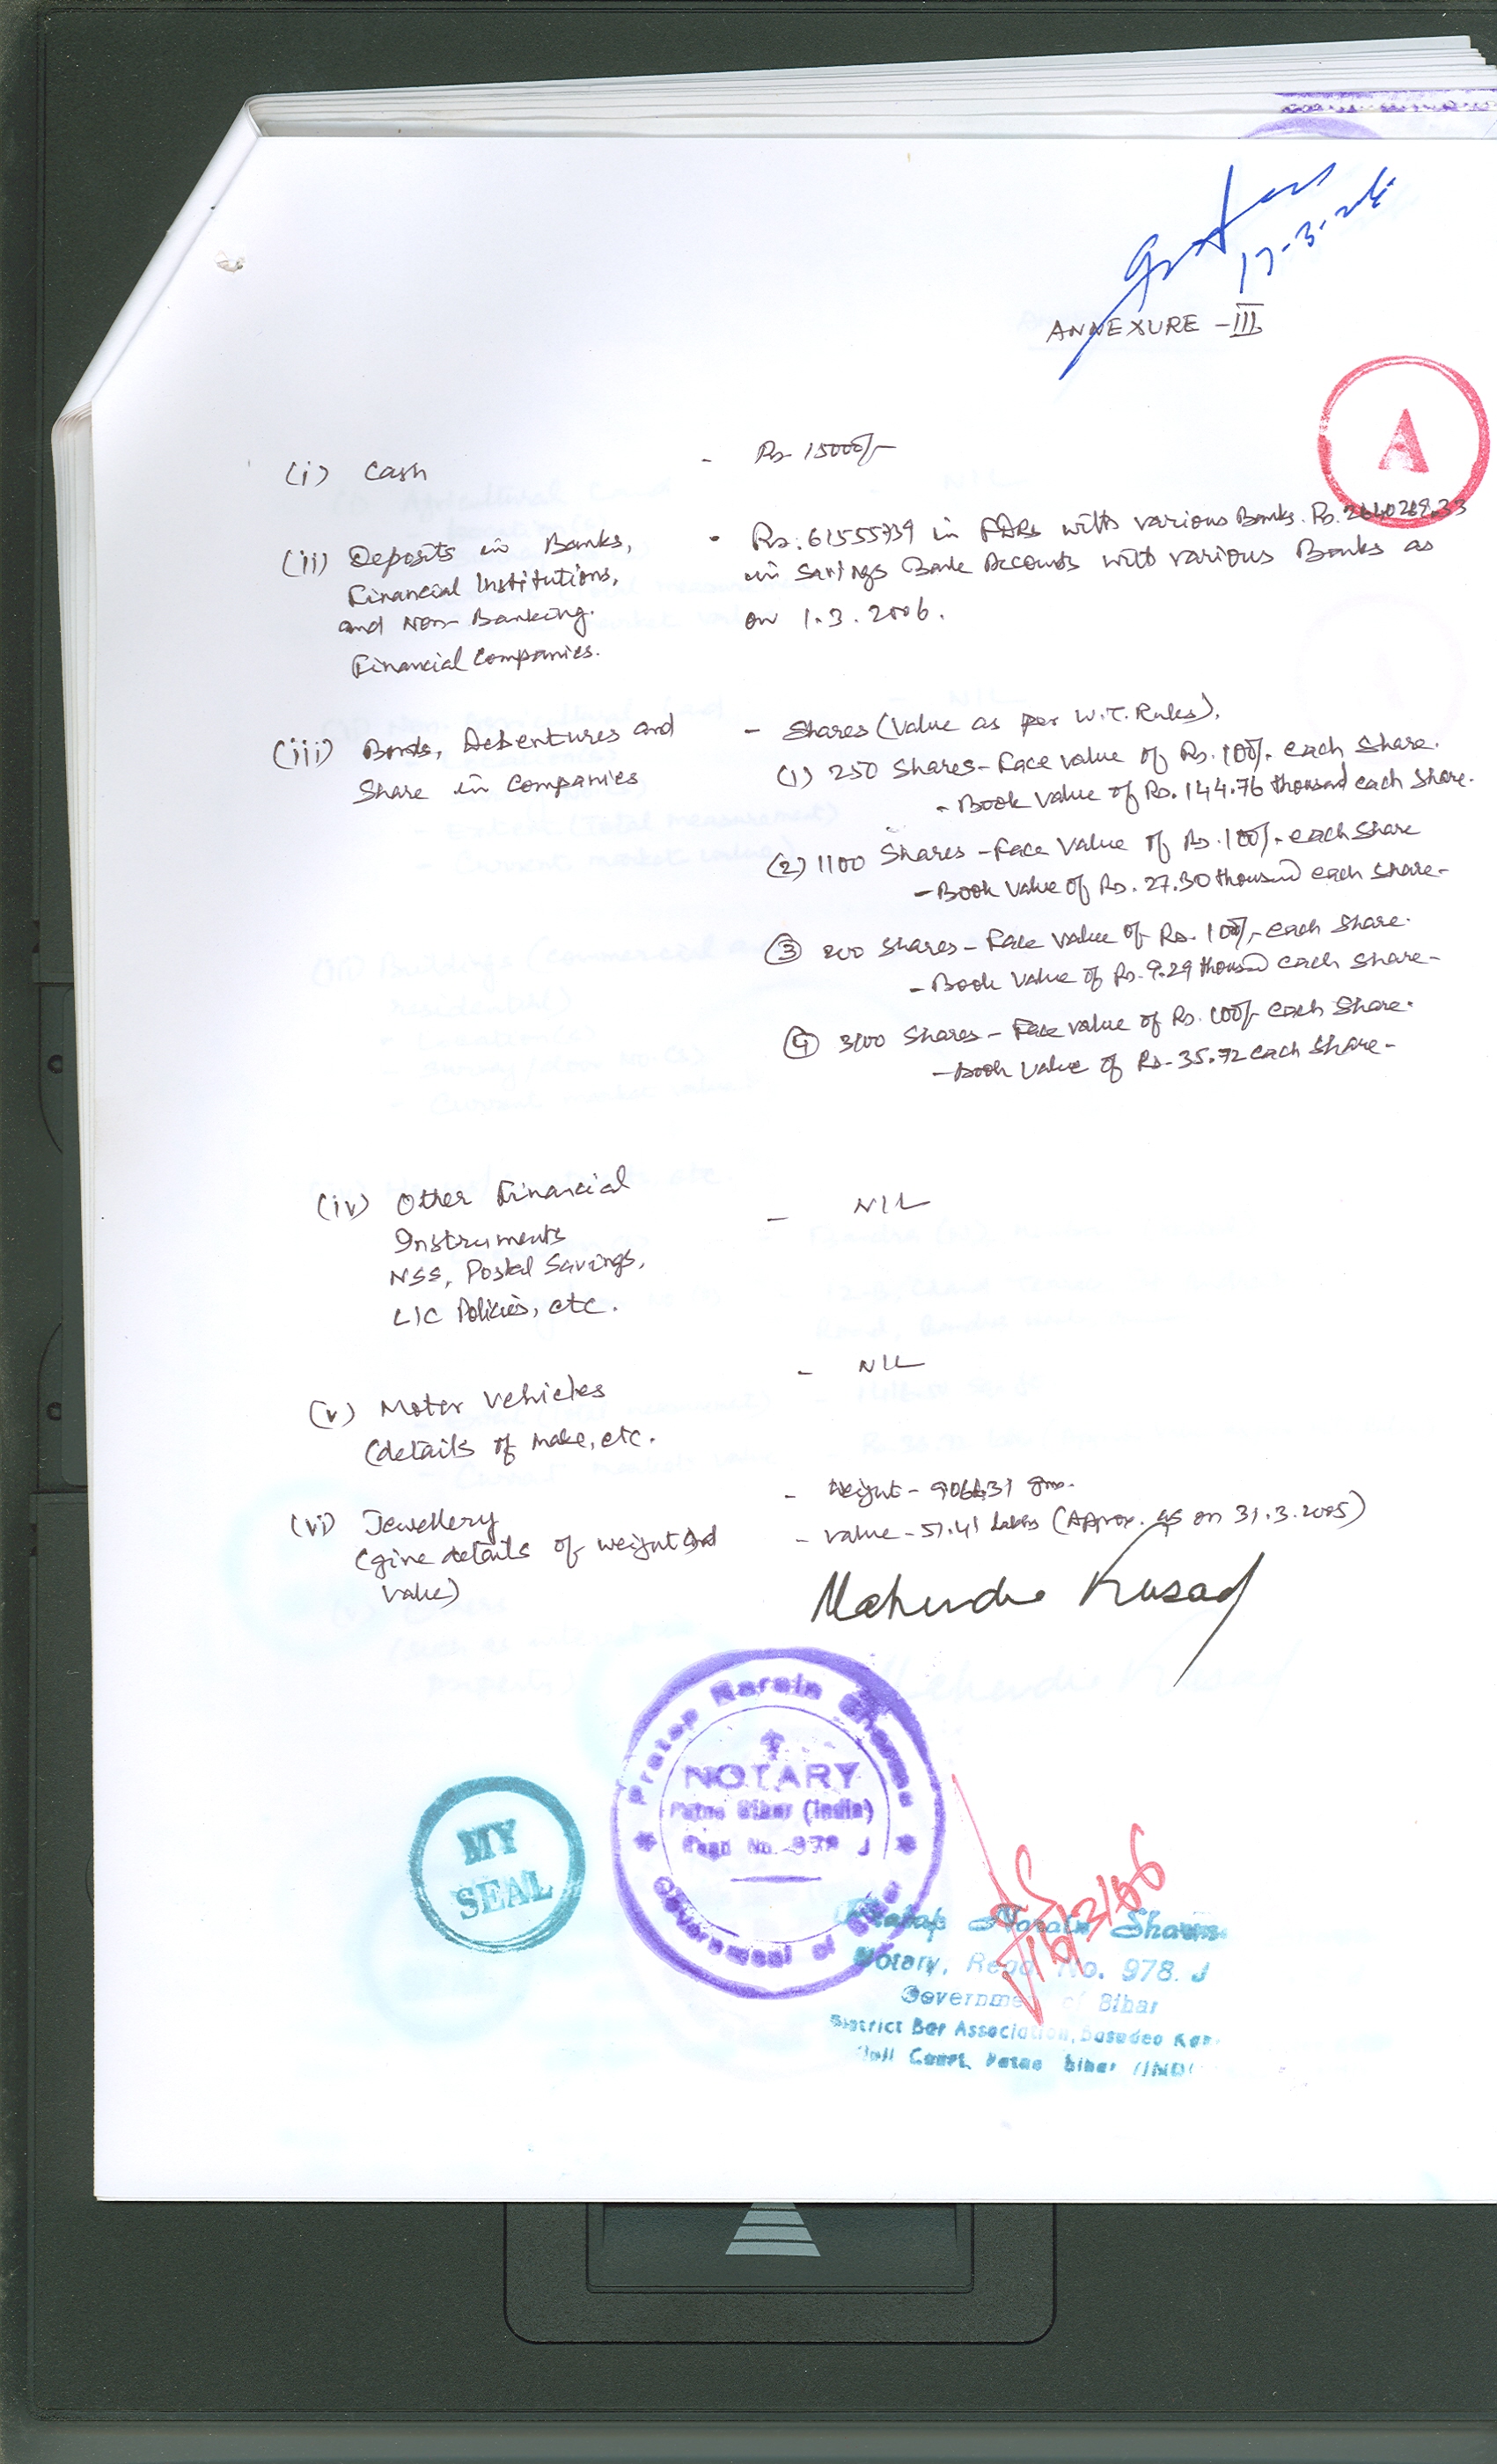 17-3-206
ANNEXURE - III
A
(i) Cash - Rs. 15000/-
(ii) Deposits in Banks,
Financial Institutions,
and Non-Banking.
Financial Companies.
- Rs. 61555739 in FDRs with various Banks. Rs.
in Savings Bank Accounts with various Banks as
on 1.3.2006.
(iii) Bonds, Debentures and
Share in Companies
- Shares (Value as per W.T. Rules).
(1) 250 Shares - Face value of Rs. 100/- each Share.
- Book value of Rs. 144.76 thousand each share.
(2) 1100 Shares - Face value of Rs. 100/- each Share
- Book value of Rs. 27.30 thousand each share-
(3) 200 Shares - Face value of Rs. 100/- each Share.
- Book value of Rs. 9.29 thousand each share-
(4) 3100 Shares - Face value of Rs. 100/- each Share.
- Book value of Rs. 35.72 each share-
(iv) Other Financial - NIL
Instruments
NSS, Postal Savings,
LIC Policies, etc.
(v) Motor Vehicles - NIL
(details of make, etc.
(vi) Jewellery
(give details of weight and
value)
- Weight - gms.
- Value - 51.41 Lakhs (Approx. as on 31.3.2005)
Mahendra Prasad
Pratap Narain Sharma
NOTARY
Patna Bihar (India)
Regd No. 978 J
Government of Bihar
MY
SEAL
16/3/06
Pratap Narain Sharma
Notary, Regd. No. 978. J
Government of Bihar
District Bar Association,
Civil Court, Patna Bihar